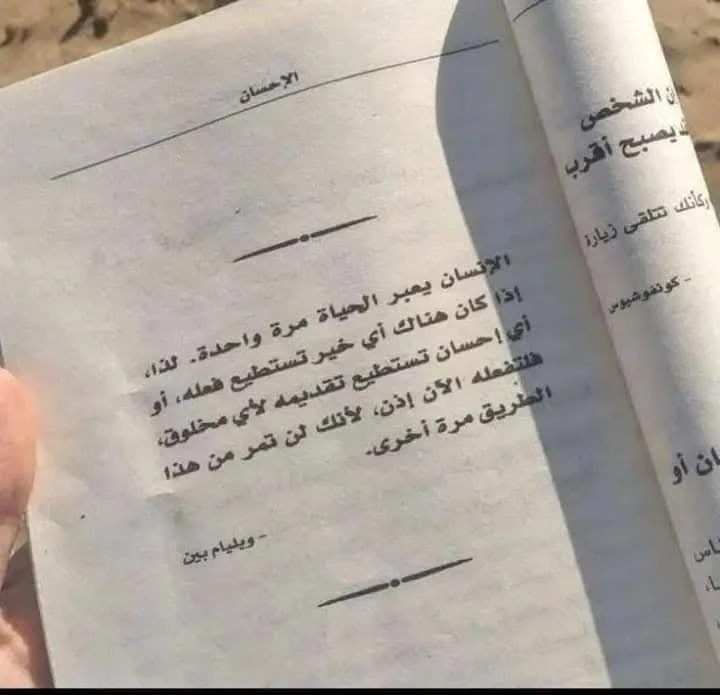 الإحسان
الإنسان يعبر الحياة مرة واحدة. لذا،
إذا كان هناك أي خير تستطيع فعله، أو
أي إحسان تستطيع تقديمه لأي مخلوق،
فلتفعله الآن إذن، لأنك لن تمر من هذا
الطريق مرة أخرى.
- ويليام بين
الشخص
يصبح أقرب
وكأنك تتلقى زيارة
- كونفوشيوس
أو